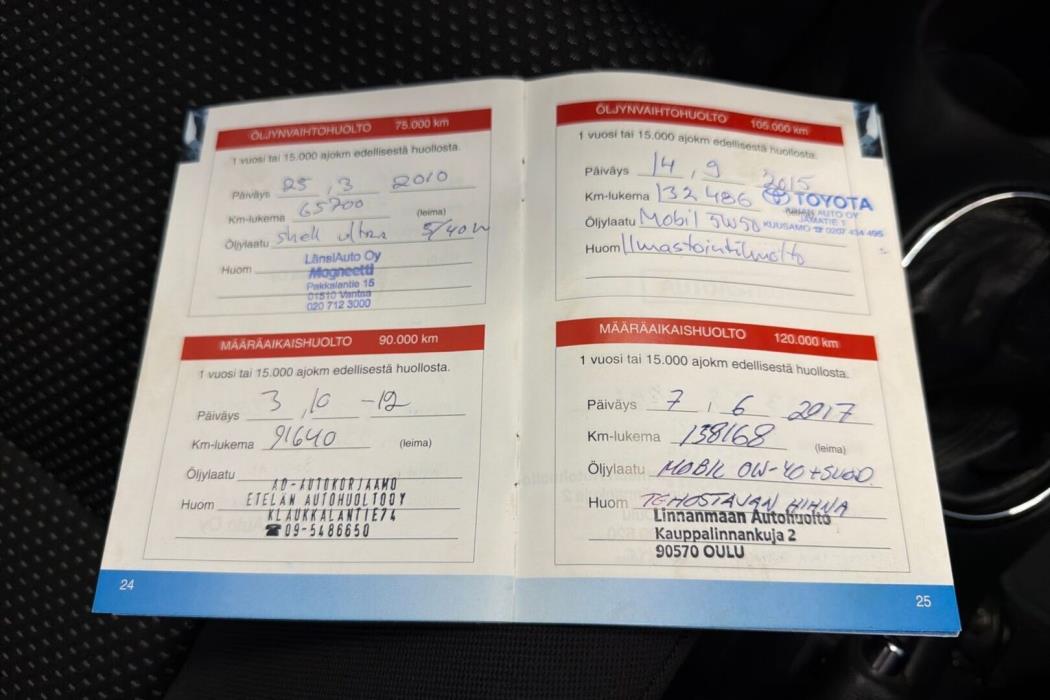 ÖLJYNVAIHTOHUOLTO 75.000 km
1 vuosi tai 15.000 ajokm edellisestä huollosta.
Päiväys 25 , 3 2010
Km-lukema 65700 (leima)
Öljylaatu Shell ultra 5/40W
Huom
LänsiAuto Oy
Magneetti
Pakkalantie 15
01510 Vantaa
020 712 3000
MÄÄRÄAIKAISHUOLTO 90.000 km
1 vuosi tai 15.000 ajokm edellisestä huollosta.
Päiväys 3 , 10 -12
Km-lukema 91640 (leima)
Öljylaatu
Huom
AD-AUTOKORJAAMO
ETELÄN AUTOHUOLTO OY
KLAUKKALANTIE 74
☎ 09-5486650
24
ÖLJYNVAIHTOHUOLTO 105.000 km
1 vuosi tai 15.000 ajokm edellisestä huollosta.
Päiväys 14 , 9 2015
Km-lukema 132 486
TOYOTA
AUTO OY
KUUSAMO ☎ 0207 434 495
Öljylaatu Mobil 5W50
Huom Ilmastointihuolto
MÄÄRÄAIKAISHUOLTO 120.000 km
1 vuosi tai 15.000 ajokm edellisestä huollosta.
Päiväys 7 , 6 2017
Km-lukema 138168 (leima)
Öljylaatu MOBIL 0W-40 + SUOD.
Huom TEHOSTAJAN HIHNA
Linnanmaan Autohuolto
Kauppalinnankuja 2
90570 OULU
25